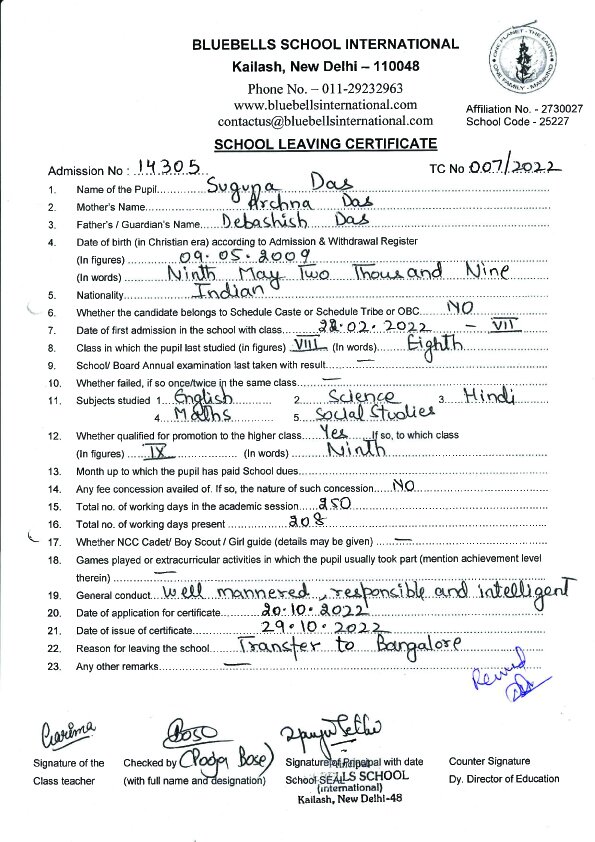 BLUEBELLS SCHOOL INTERNATIONAL
Kailash, New Delhi – 110048
Phone No. – 011-29232963
www.bluebellsinternational.com
contactus@bluebellsinternational.com
ONE PLANET - THE EARTH
ONE FAMILY - MANKIND
Affiliation No. - 2730027
School Code - 25227
SCHOOL LEAVING CERTIFICATE
Admission No : 14305 TC No 007/2022
1. Name of the Pupil Suguna Das
2. Mother's Name Archna Das
3. Father's / Guardian's Name Debashish Das
4. Date of birth (in Christian era) according to Admission & Withdrawal Register
(In figures) 09.05.2009
(In words) Ninth May Two Thousand Nine
5. Nationality Indian
6. Whether the candidate belongs to Schedule Caste or Schedule Tribe or OBC NO
7. Date of first admission in the school with class 22.02.2022 – VII
8. Class in which the pupil last studied (in figures) VIII (In words) Eighth
9. School/ Board Annual examination last taken with result —
10. Whether failed, if so once/twice in the same class —
11. Subjects studied 1. English 2. Science 3. Hindi
4. Maths 5. Social Studies
12. Whether qualified for promotion to the higher class Yes If so, to which class
(In figures) IX (In words) Ninth
13. Month up to which the pupil has paid School dues
14. Any fee concession availed of. If so, the nature of such concession NO
15. Total no. of working days in the academic session 250
16. Total no. of working days present 208
17. Whether NCC Cadet/ Boy Scout / Girl guide (details may be given) —
18. Games played or extracurricular activities in which the pupil usually took part (mention achievement level
therein) —
19. General conduct well mannered, responsible and intelligent
20. Date of application for certificate 20.10.2022
21. Date of issue of certificate 29.10.2022
22. Reason for leaving the school Transfer to Bangalore
23. Any other remarks —
Garima
Bose
(Pooja Bose)
Signature of the Checked by Signature of Principal with date Counter Signature
Class teacher (with full name and designation) School SEAL Dy. Director of Education
LLS SCHOOL
(international)
Kailash, New Delhi-48